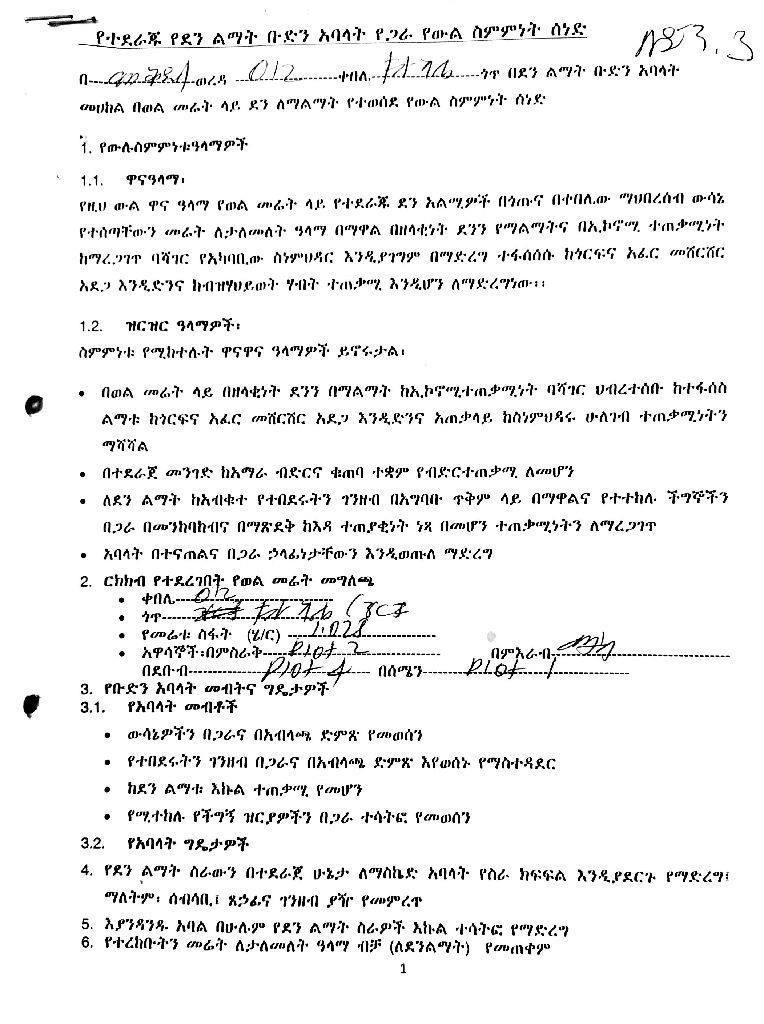 የተደራጁ የደን ልማት ቡድን አባላት የጋራ የውል ስምምነት ሰነድ
በ---- ወረዳ 012 ቀበሌ ---- ጎጥ በደን ልማት ቡድን አባላት
መሀከል በወል መሬት ላይ ደን ለማልማት የተወሰደ የውል ስምምነት ሰነድ
1. የውሉስምምነቱዓላማዎች
1.1. ዋናዓላማ፡
የዚህ ውል ዋና ዓላማ የወል መሬት ላይ የተደራጁ ደን አልሚዎች በጎጡና በተበሌው ማህበረሰብ ውሳኔ
የተሰጣቸውን መሬት ለታለመለት ዓላማ በማዋል በዘላቂነት ደንን የማልማትና በኢኮኖሚ ተጠቃሚነት
ከማረጋገጥ ባሻገር የአካባቢው ስነምህዳር እንዲያገግም በማድረግ ተፋሰሱ ከጎርፍና አፈር መሸርሸር
አደጋ እንዲድንና ከብዝሃህይወት ሃብት ተጠቃሚ እንዲሆን ለማድረግነው፡፡
1.2. ዝርዝር ዓላማዎች፡
ስምምነቱ የሚከተሉት ዋናዋና ዓላማዎች ይኖሩታል፡
• በወል መሬት ላይ በዘላቂነት ደንን በማልማት ከኢኮኖሚተጠቃሚነት ባሻገር ህብረተሰቡ ከተፋሰስ
ልማቱ ከጎርፍና አፈር መሸርሸር አደጋ እንዲድንና አጠቃላይ ከስነምህዳሩ ሁለገብ ተጠቃሚነትን
ማሻሻል
• በተደራጀ መንገድ ከአማራ ብድርና ቁጠባ ተቋም የብድርተጠቃሚ ለመሆን
• ለደን ልማት ከአብቁተ የተበደሩትን ገንዘብ በአግባቡ ጥቅም ላይ በማዋልና የተተከሉ ችግኞችን
በጋራ በመንከባከብና በማጽደቅ ከእዳ ተጠያቂነት ነጻ በመሆን ተጠቃሚነትን ለማረጋገጥ
• አባላት በተናጠልና በጋራ ኃላፊነታቸውን እንዲወጡለ ማድረግ
2. ርክክብ የተደረገበት የወል መሬት መግለጫ
• ቀበሌ 012
• ጎጥ
• የመሬቱ ስፋት (ሄ/ር) 1.028
• አዋሳኞች፡በምስራቅ plot 2 በምእራብ
በደቡብ plot 4 በሰሜን plot 1
3. የቡድን አባላት መብትና ግዴታዎች
3.1. የአባላት መብቶች
• ውሳኔዎችን በጋራና በአብላጫ ድምጽ የመወሰን
• የተበደሩትን ገንዘብ በጋራና በአብላጫ ድምጽ እየወሰኑ የማስተዳደር
• ከደን ልማቱ እኩል ተጠቃሚ የመሆን
• የሚተከሉ የችግኝ ዝርያዎችን በጋራ ተሳትፎ የመወሰን
3.2. የአባላት ግዴታዎች
4. የደን ልማት ስራውን በተደራጀ ሁኔታ ለማስኬድ አባላት የስራ ክፍፍል እንዲያደርጉ የማድረግ፤
ማለትም፡ ሰብሳቢ፤ ጸኃፊና ገንዘብ ያዥ የመምረጥ
5. እያንዳንዱ አባል በሁሉም የደን ልማት ስራዎች እኩል ተሳትፎ የማድረግ
6. የተረከቡትን መሬት ለታለመለት ዓላማ ብቻ (ለደንልማት) የመጠቀም
1